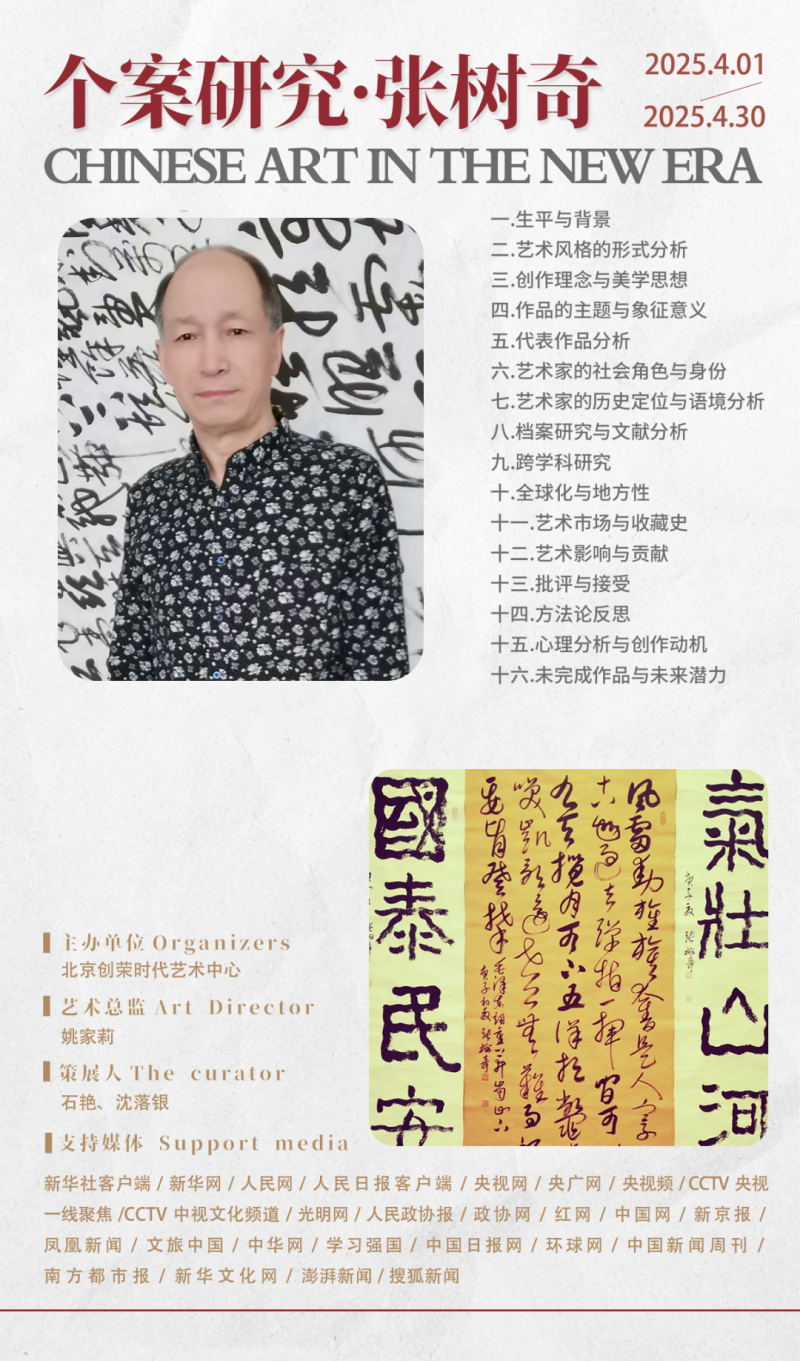 个案研究·张树奇
2025.4.01
2025.4.30
CHINESE ART IN THE NEW ERA
一.生平与背景
二.艺术风格的形式分析
三.创作理念与美学思想
四.作品的主题与象征意义
五.代表作品分析
六.艺术家的社会角色与身份
七.艺术家的历史定位与语境分析
八.档案研究与文献分析
九.跨学科研究
十.全球化与地方性
十一.艺术市场与收藏史
十二.艺术影响与贡献
十三.批评与接受
十四.方法论反思
十五.心理分析与创作动机
十六.未完成作品与未来潜力
氣壯山河
風雷動旌旗奮是人寰
國泰民安
主办单位 Organizers
北京创荣时代艺术中心
艺术总监 Art Director
姚家莉
策展人 The curator
石艳、沈落银
支持媒体 Support media
新华社客户端 / 新华网 / 人民网 / 人民日报客户端 / 央视网 / 央广网 / 央视频 / CCTV 央视
一线聚焦 /CCTV 中视文化频道 / 光明网 / 人民政协报 / 政协网 / 红网 / 中国网 / 新京报 /
凤凰新闻 / 文旅中国 / 中华网 / 学习强国 / 中国日报网 / 环球网 / 中国新闻周刊 /
南方都市报 / 新华文化网 / 澎湃新闻 / 搜狐新闻